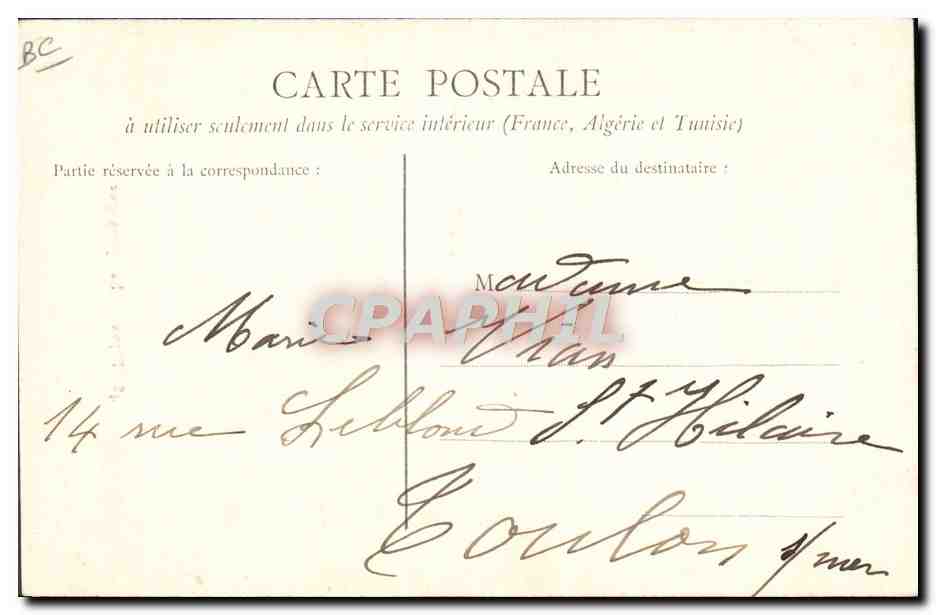 BC
CARTE POSTALE
à utiliser seulement dans le service intérieur (France, Algérie et Tunisie)
Partie réservée à la correspondance :
Adresse du destinataire :
Madame
Marie Vian
14 rue Leblond St Hilaire
Toulon s/mer
CPAPHIL